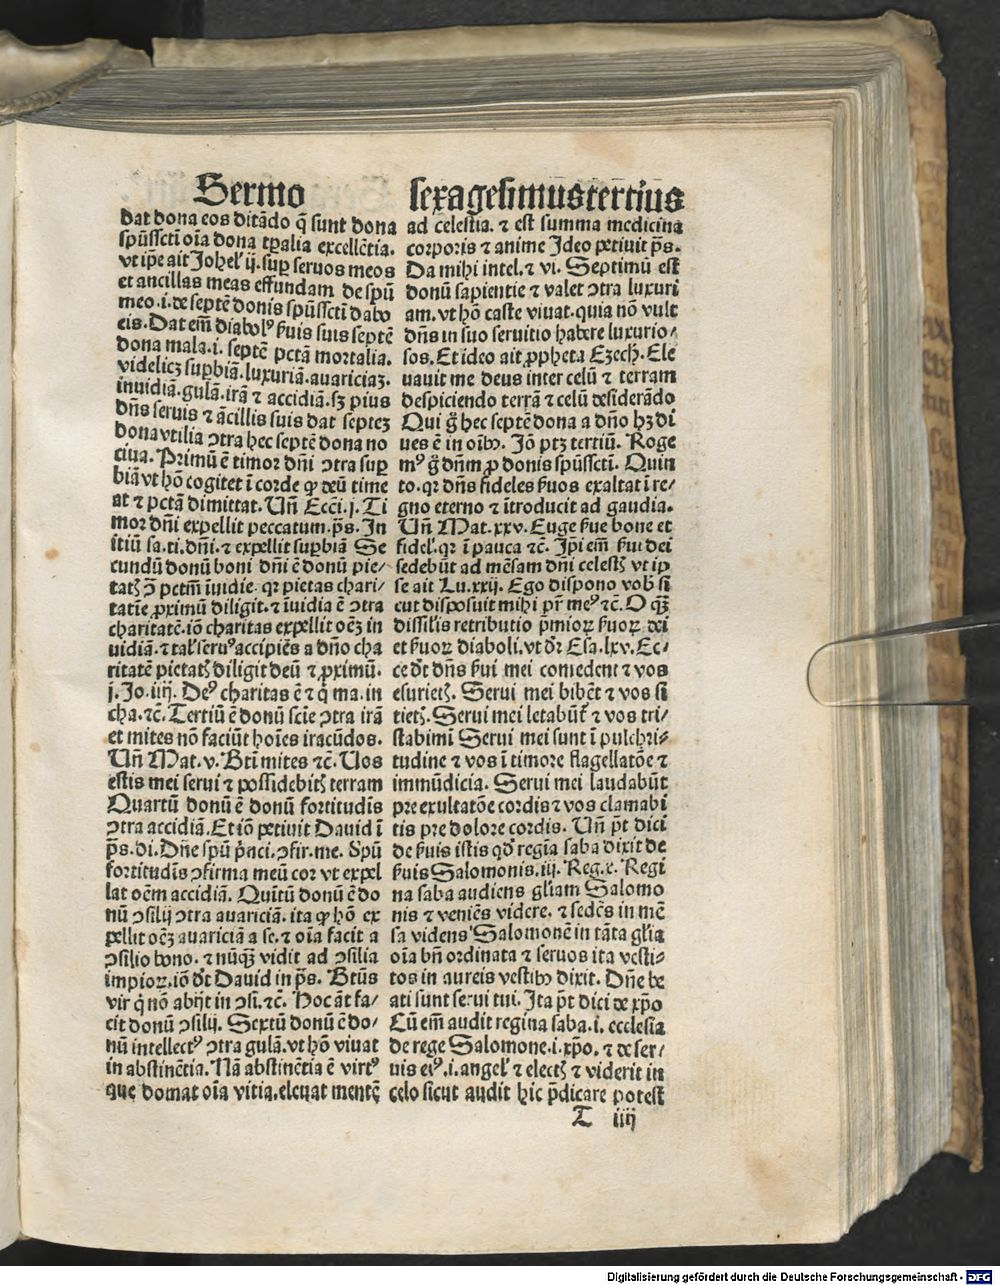 Sermo
dat dona eos ditãdo q̃ sunt dona
spũssctĩ oĩa dona tꝑalia excellẽtia.
vt ip̃e ait Johel' ij. suꝑ seruos meos
et ancillas meas effundam de spũ
meo .i. de septẽ donis spũssctĩ dabo
eis. Dat em̃ diabolꝰ ẜuis suis septẽ
dona mala .i. septẽ pctã mortalia.
videlicꝫ suꝑbiã. luxuriã. auariciaꝫ.
inuidiã. gulã. irã ⁊ accidiã. sꝫ pius
dñs seruis ⁊ ãcillis suis dat septeꝫ
dona vtilia ꝯtra hec septẽ dona no
ciua. Primũ ẽ timor dñi ꝯtra suꝑ
biã vt hõ cogitet ĩ corde ꝙ deũ time
at ⁊ pctã dimittat. Uñ Ecci. j. Ti
mor dñi expellit peccatum. p̃s. In
itiũ sa. ti. dñi. ⁊ expellit suꝑbiã Se
cundũ donũ boni dñi ẽ donũ pie⸗
tatꝭ ꝯ̃ pctm̃ ĩuidie. qꝛ pietas chari⸗
tatẽ ꝓximũ diligit. ⁊ ĩuidia ẽ ꝯtra
charitatẽ. iõ charitas expellit oẽꝫ in
uidiã. ⁊ tal' seruꝰ accipiẽs a dño cha
ritatẽ pietatꝭ diligit deũ ⁊ ꝓximũ.
j. Jo. iiij. Deꝰ charitas ẽ ⁊ q̇ ma. in
cha. ⁊c̃. Tertiũ ẽ donũ sciẽ ꝯtra irã
et mites nõ faciũt hoĩes iracũdos.
Uñ Mat. v. Btĩ mites ⁊c̃. Uos
estis mei serui ⁊ possidebitꝭ terram
Quartũ donũ ẽ donũ fortitudĩs
ꝯtra accidiã. Et iõ petiuit Dauid ĩ
p̃s. di. Dñe spũ p̃nci. ꝯfir. me. Spũ
fortitudĩs ꝯfirma meũ cor vt expel
lat oẽm accidiã. Quĩtũ donũ ẽ do
nũ ꝯsilij ꝯtra auariciã. ita ꝙ hõ ex
pellit oẽꝫ auariciã a se. ⁊ oĩa facit a
ꝯsilio bono. ⁊ nũq̃ꝫ vidit ad ꝯsilia
impioꝝ. iõ dr̃t Dauid in p̃s. Btũs
vir q̇ nõ abijt in ꝯsi. ⁊c̃. Hoc ãt fa⸗
cit donũ ꝯsilij. Sextũ donũ ẽ do⸗
nũ intellectꝰ ꝯtra gulã. vt hõ viuat
in abstinẽtia. Nã abstinẽtia ẽ virtꝰ
que domat oĩa vitia. eleuat mentẽ
sexagesimustertius
ad celestia. ⁊ est summa medicina
corporis ⁊ anime Ideo petiuit p̃s.
Da mihi intel. ⁊ vi. Septimũ est
donũ sapientie ⁊ valet ꝯtra luxuri
am. vt hõ caste viuat. quia nõ vult
dñs in suo seruitio habere luxurio⸗
sos. Et ideo ait ꝓpheta Ezech. Ele
uauit me deus inter celũ ⁊ terram
despiciendo terrã ⁊ celũ desiderãdo
Qui g̊ hec septẽ dona a dño hꝫ di
ues ẽ in oĩbꝰ. Jõ ptꝫ tertiũ. Roge
mꝰ g̊ dñm ꝓ donis spũssctĩ. Quin
to. qꝛ dñs fideles ẜuos exaltat ĩ re⸗
gno eterno ⁊ ĩtroducit ad gaudia.
Uñ Mat. xxv. Euge ẜue bone et
fidel'. qꝛ ĩ pauca ⁊c̃. Jp̃i em̃ ẜui dei
sedebũt ad mẽsam dñi celestꝭ vt ip
se ait Lu. xxij. Ego dispono vob̃ si
cut disposuit mihi pr̃ meꝰ ⁊c̃. O q̃ꝫ
dissilis retributio p̃mioꝝ ẜuoꝝ dei
et ẜuoꝝ diaboli. vt dr̃ Esa. lxv. Ec⸗
ce dr̃t dñs ẜui mei comedent ⁊ vos
esurietꝭ. Serui mei bibẽt ⁊ vos si
tietꝭ. Serui mei letabũt̃ ⁊ vos tri⸗
stabimĩ Serui mei sunt ĩ pulchri⸗
tudine ⁊ vos ĩ timore flagellatõe ⁊
immũdicia. Serui mei laudabũt
pre exultatõe cordis ⁊ vos clamabi
tis pre dolore cordis. Uñ p̃t dici
de ẜuis istis qd̃ regĩa saba dixit de
ẜuis Salomonis. iij. Reg. x. Regi
na saba audiens gl̃iam Salomo
nis ⁊ veniẽs videre. ⁊ sedẽs in mẽ
sa videns Salomonẽ in tãta gl̃ia
oĩa bñ ordinata ⁊ seruos ita vesti⸗
tos in aureis vestibꝰ dixit. Dñe be
ati sunt serui tui. Jta p̃t dici de xp̃o
Cũ em̃ audit regina saba .i. ecclesia
de rege Salomone .i. xp̃o. ⁊ de ser⸗
uis eiꝰ .i. angel' ⁊ electꝭ ⁊ viderit in
celo sicut audit hic p̃dicare potest
T iiij
Digitalisierung gefördert durch die Deutsche Forschungsgemeinschaft - DFG